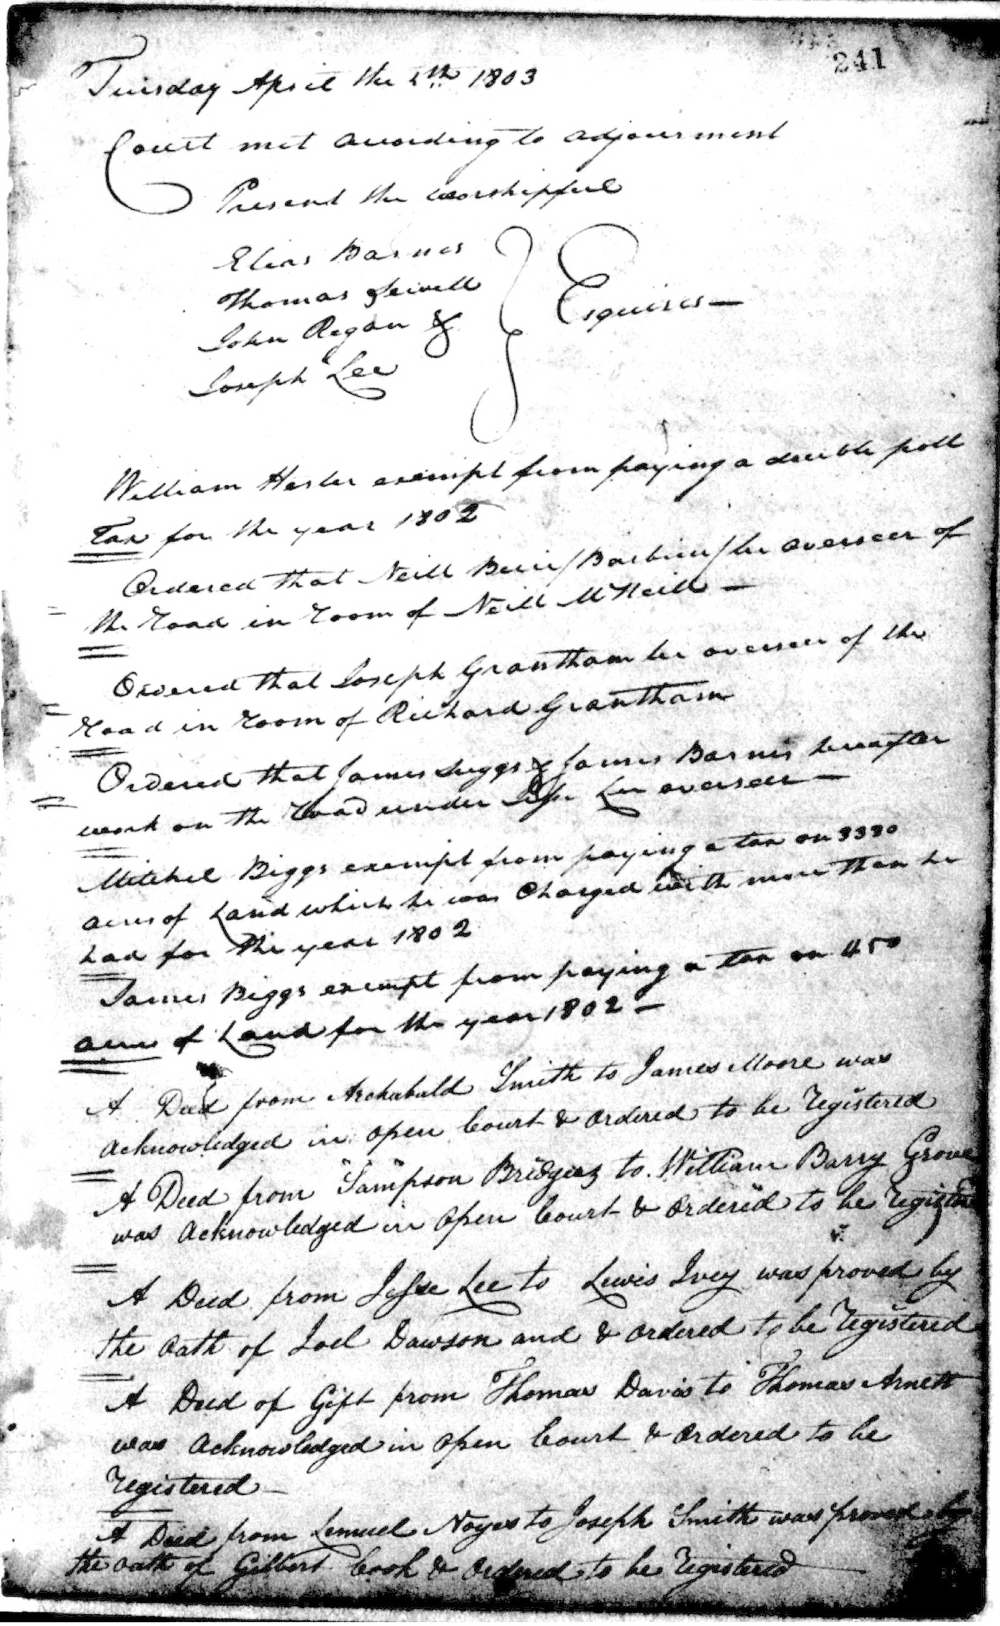 241
Tuesday April the 5th 1803
Court met according to adjournment
Present the worshipfull
Elias Barnes
Thomas Sewell
John Regan &
Joseph Lee
Esquires
William Hester exempt from paying a double poll
Tax for the year 1802
Ordered that Neill Buie / Barbicue / be overseer of
the Road in room of Neill McNeill
Ordered that Joseph Grantham be overseer of the
Road in room of Richard Grantham
Ordered that James Suggs & James Barnes hereafter
work on the road under Lee overseer
Mitchel Biggs exempt from paying a tax on 3330
acres of Land which he was Charged with more than he
had for the year 1802
James Biggs exempt from paying a tax on 450
acres of Land for the year 1802
A Deed from Archabald Smith to James Moore was
acknowledged in open Court & ordered to be registered
A Deed from Sampson Bridgers to William Barry Grove
was acknowledged in open Court & ordered to be registered
A Deed from Jesse Lee to Lewis Ivey was proved by
the oath of Joel Dawson and & ordered to be registered
A Deed of Gift from Thomas Davis to Thomas Arnett
was acknowledged in open Court & ordered to be
registered
A Deed from Lemuel Noyes to Joseph Smith was proved by
the oath of Gilbert Cook & ordered to be registered